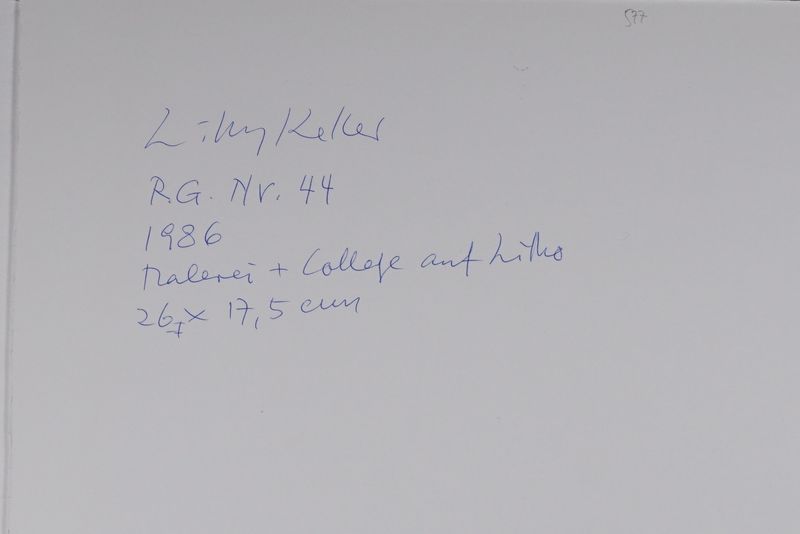 577
Lilly Keller
R.G. Nr. 44
1986
Malerei + Collage auf Litho
26 x 17,5 cm